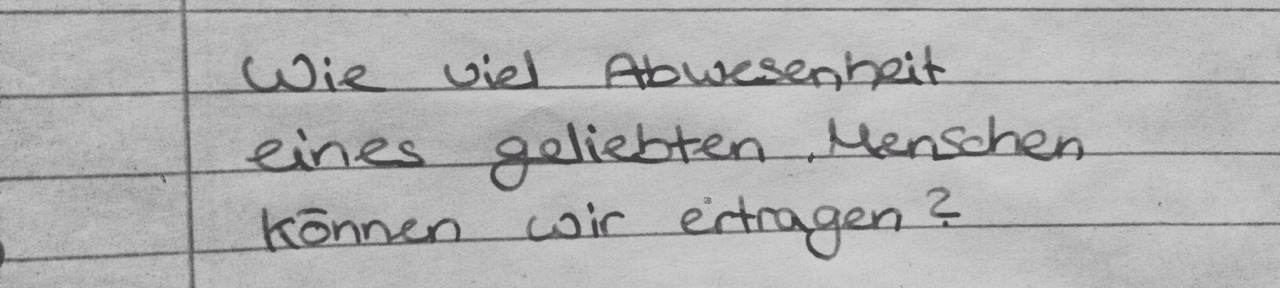 Wie viel Abwesenheit
eines geliebten Menschen
können wir ertragen?